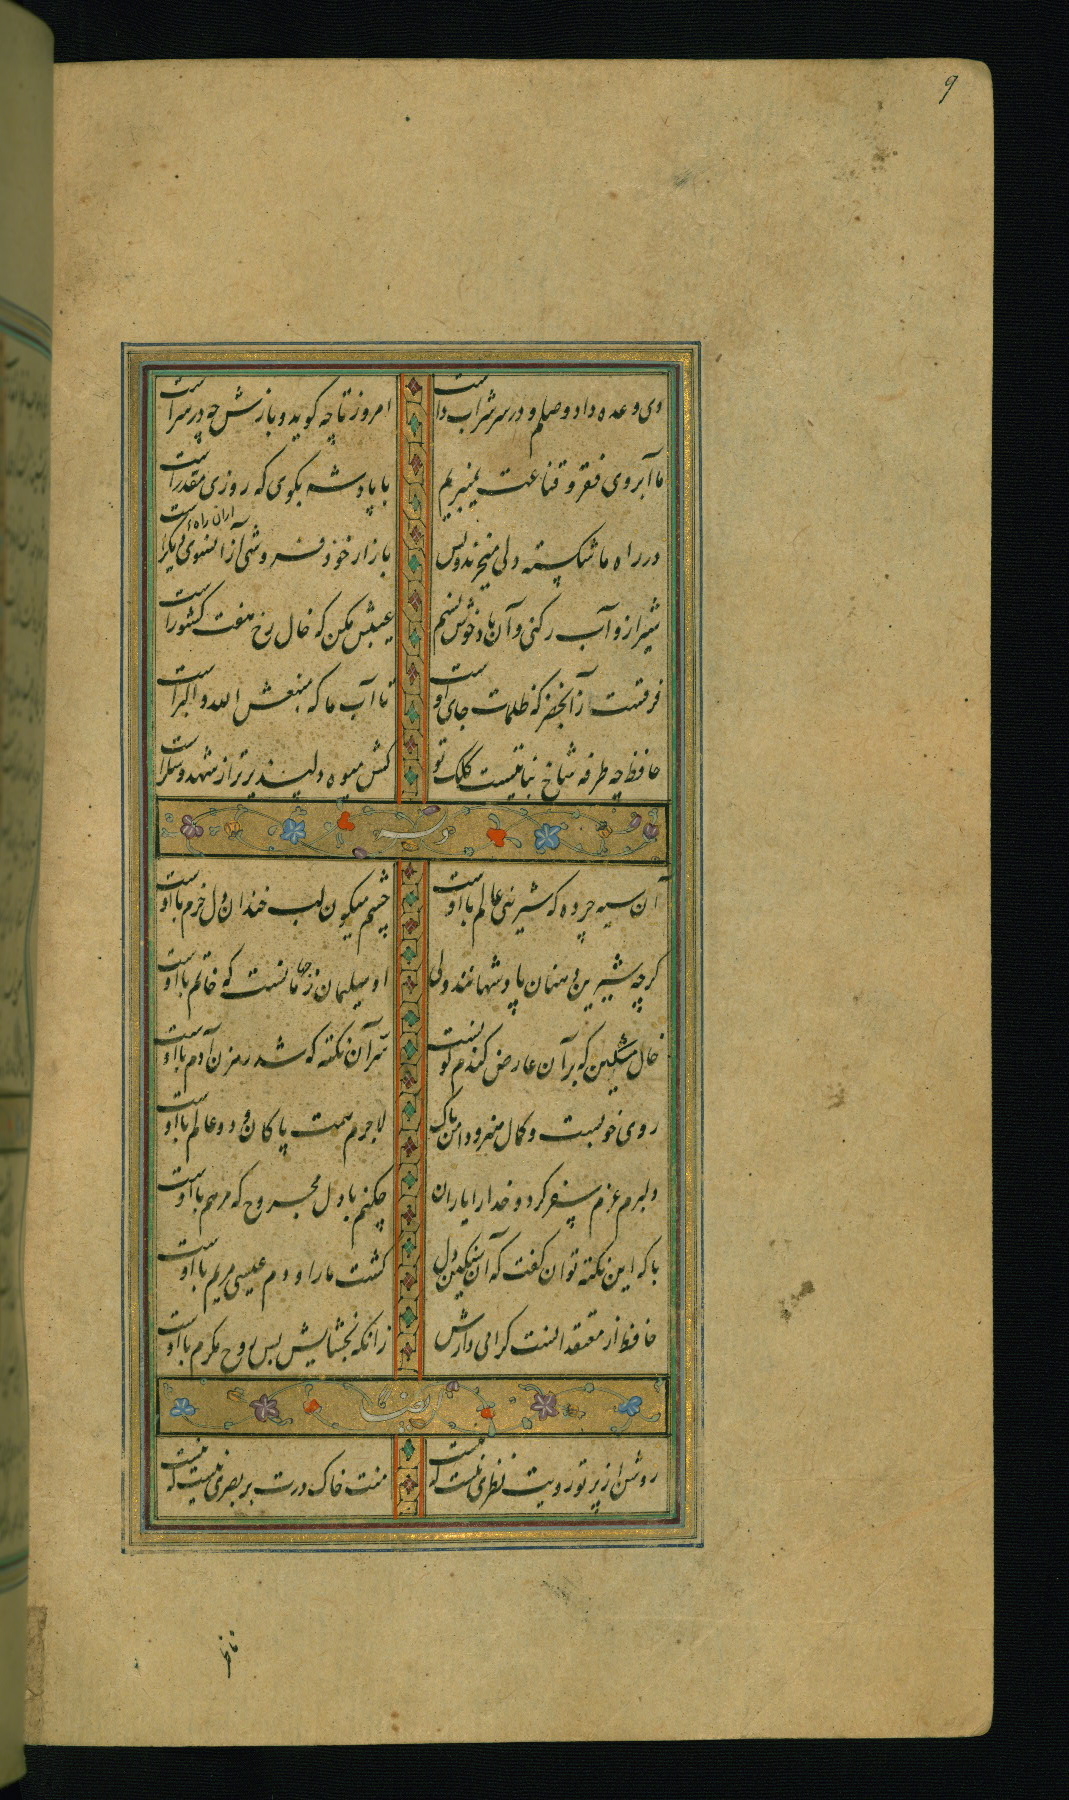 9
دی وعده داد وصلم و در سر شراب داست امروز تا چه کوید و بازش چه در سراست
ما آبروی فقر و قناعت نمیبریم با پادشه بکوی که روزی مقدراست
در راه ما شکسته دلی میخرند و بس بازار خود فروشی از آنسوی دیکراست
شیراز و آب رکنی و آن باد خوش نسیم عیبش مکن که خال رخ هفت کشوراست
فرقست از آبخضر که ظلمات جای اوست تا آب ما که منبعش الله و اکبراست
حافظ چه طرفه شاخ نباتیست کلک تو کش میوه دلپذیرتر از شهد و
وله
آن سیه چرده که شیرینی عالم با اوست چشم میکون لب خندان دل خرم با اوست
کرچه شیرین دهنان پادشهانند ولی او سلیمان زمانست که خاتم با اوست
خال مشکین که بر آن عارض کندم کونست سر آن نکته که شد رهزن آدم با اوست
روی خوبست و کمال هنر و دامن پاک لاجرم همت پاکان دو عالم با اوست
دلبرم عزم سفر کرد و خدا را یاران چکنم با دل مجروح که مرهم با اوست
با که این نکته توان کفت که آن سنکین دل کشت ما را و دم عیسی مریم با اوست
حافظ از معتقدانست کرامی دارش زانکه بخشایش بس روح مکرم با اوست
ایضا
روشن از پرتو رویت نظری نیست که نیست منت خاک درت بر بصری نیست که نیست